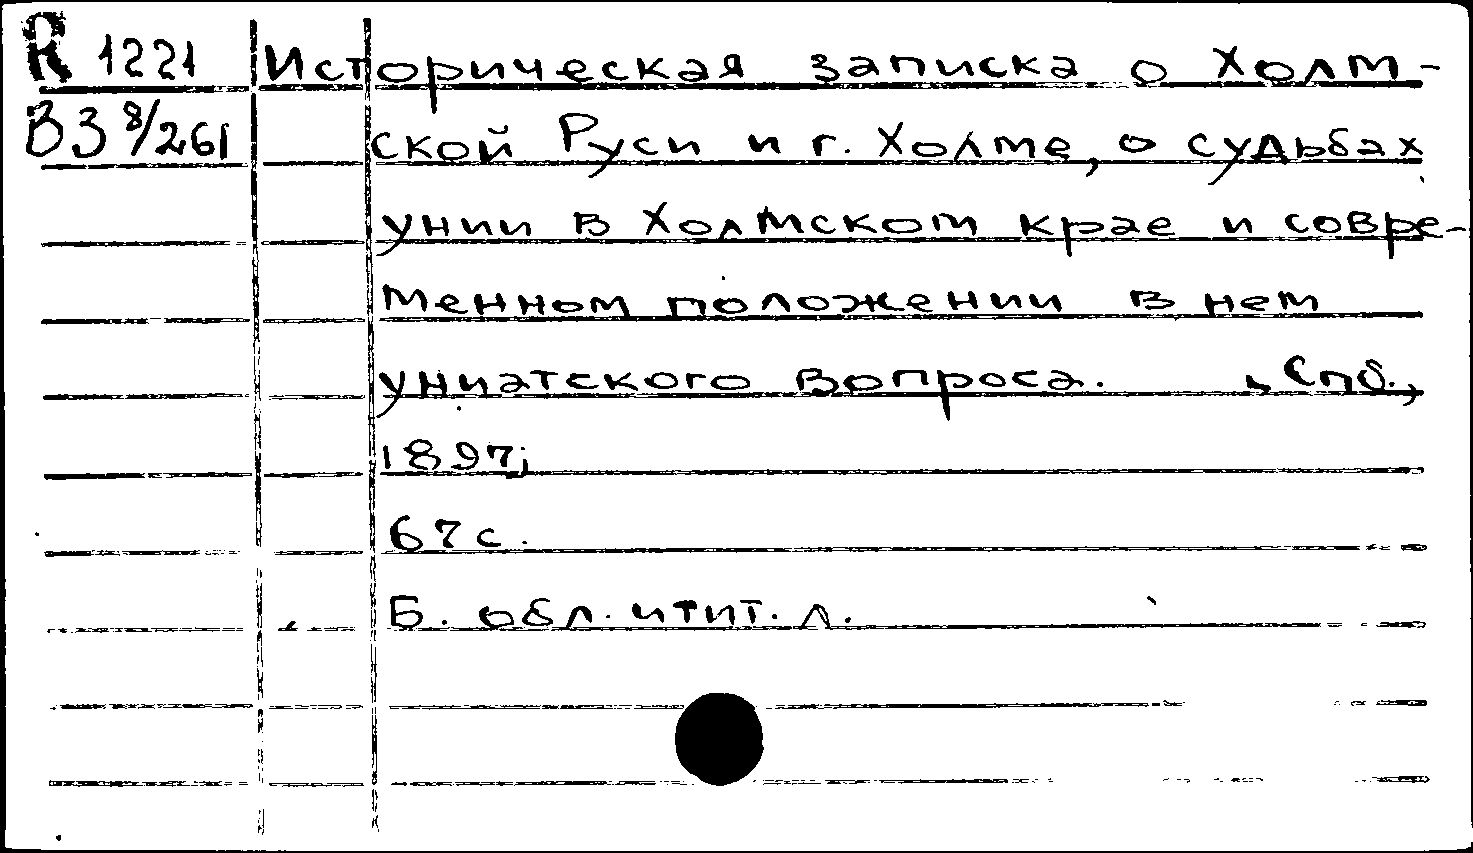 R 1221 Историческая записка о Холм-
В3 8/261 ской Руси и г. Холме, о судьбах
унии в Холмском крае и совре-
менном положении в нем
униатского вопроса. Спб.,
1897;
67 с.
Б. обл. и тит. л.